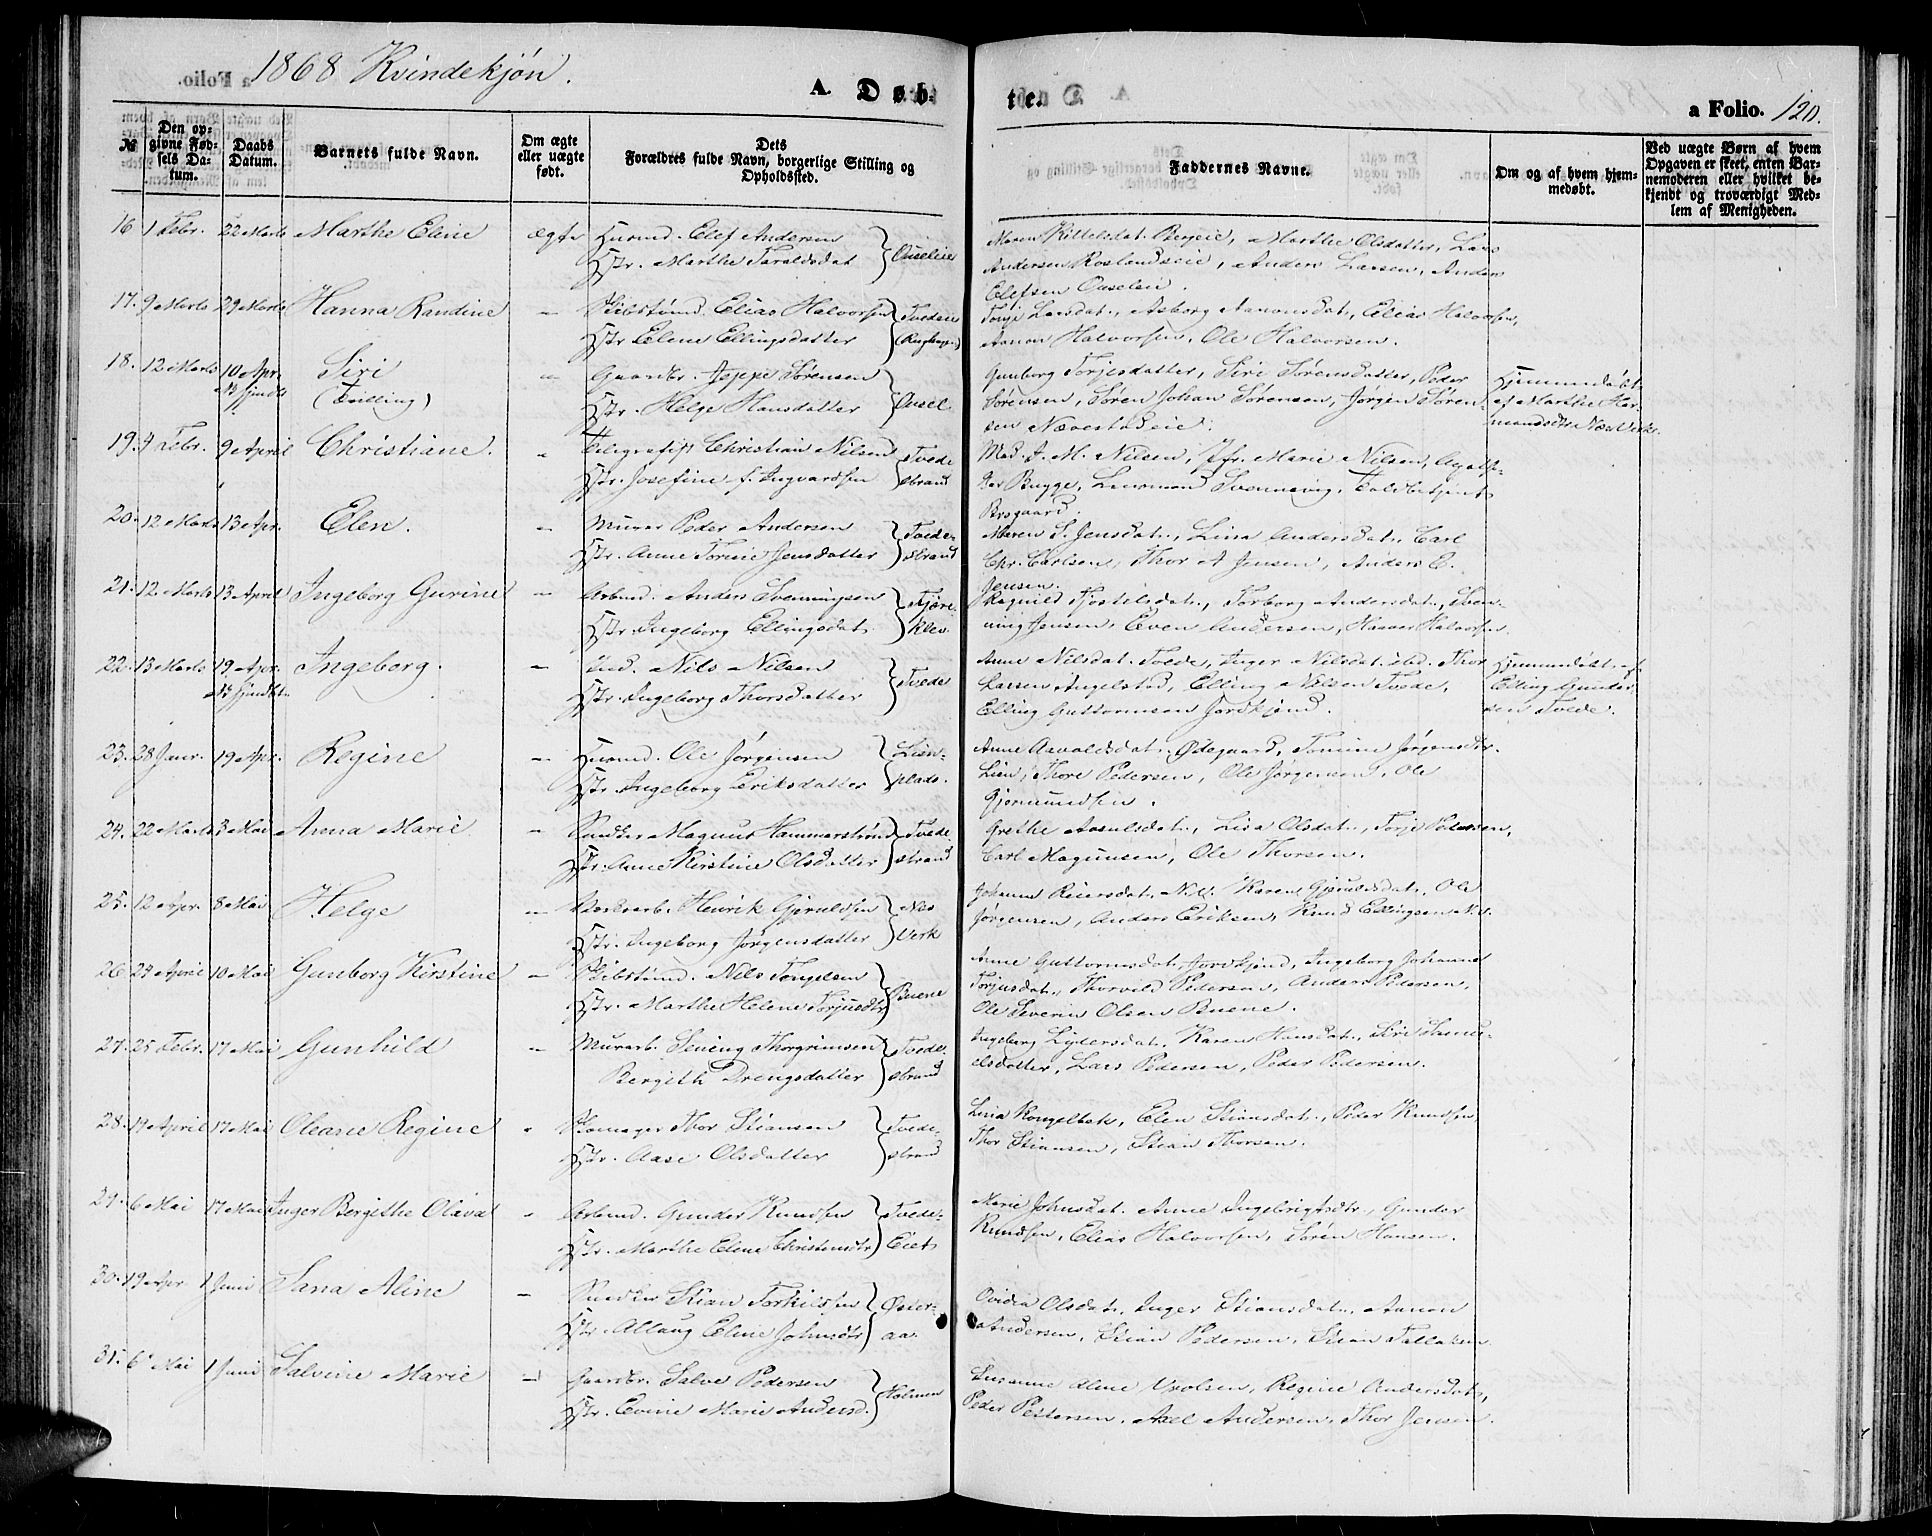 1868 Kvindekjön.
A. Døb-
te.
a Folio. 120.
№
Den op-
givne Fød-
sels Da-
tum.
Daabs
Datum.
Barnets fulde Navn.
Om ægte
eller uægte
født.
Dets
Forældres fulde Navn, borgerlige Stilling og
Opholdssted.
Faddernes Navne.
Om og af hvem hjem-
medøbt.
Ved uægte Børn af hvem
Opgaven er skeet, enten Bar-
nemoderen eller hvilket be-
kjendt og troværdigt Med-
lem af Menigheden.
16. 1 Febr. 22 Marts Marthe Eline ægte Husmd. Elef Andersen
Hstr. Marthe Taraldsdat } Ouseleie
Maren Kittelsdat. Bergeie, Marthe Olsdatter, Lars
Andersen Roslandseie, Anders Larsen, Anders
Elefsen Ouseleie.
17. 9 Marts 29 Marts Hanna Randine Skibstømd. Elias Halvorsen
Hstr Elene Ellingsdatter } Tvedeeie
Terje Larsdat., Asborg Aanonsdat., Elias Halvorsen,
Aanon Halvorsen, Ole Halvorsen.
18. 12 Marts 10 Apr. Siri Gaardbr. Jeppe Sørensen
(Tvilling) Hstr. Helge Hansdatter } Ousel
Gunborg Terjesdatter, Siri Sørensdatter, Peder
Sørensen, Søren Johan Sørensen, Jørgen Søren-
sen Nævestadeie.
Hjemmedøbt
af Marthe Her-
mandsdtr Næs Verk.
19. 4 Febr. 9 April Christiane. Telegrafist Christian Nilsen
Hstr. Josefine f. Ingvardsen } Tvede
strand
Mad. J. M. Nilsen, Jfr. Marie Nilsen, Apothe-
ker Bugge, Lensmand Svenning, Toldbetjent
Brogaard.
20. 12 Marts 13 Apr. Elen. Murer Peder Andersen
Hstr. Anne Tomine Jensdatter } Tvede-
strand
Maren S. Jensdat., Lina Andersdat., Carl
Chr. Carlsen, Thor A Jensen, Anders E.
Jensen.
21. 12 Marts 13 April Ingeborg Gurine Arbmd. Anders Svenningsen
Hstr. Ingeborg Ellingsdat. } Fjære-
klev
Ragnild Kjostelsdat., Torborg Andersdat., Sven-
ning Jensen, Even Andersen, Haaver Halvorsen
22. 13 Marts 19 Apr. Ingeborg. Ind. Nils Nilsen
Hstr. Ingeborg Thorsdatter } Tvede
Anne Nilsdat. Tvede, Inger Nilsdat. ibd. Thor
Larsen Angelstad, Elling Nilsen Tvede,
Elling Guttormsen Jordkjend.
Hjemmedøbt af
Elling Gunder
sen Tvede.
23. 28 Janr. 19 Apr. Regine Husmd. Ole Jørgensen
Hstr Ingeborg Eriksdatter } Lien-
plads.
Anne Aavoldsdat. Ødegaard, Tomine Jørgensdtr.
Lien, Thore Pedersen, Ole Jørgensen, Ole
Gjermundsen.
24. 22 Marts 3 Mai Anna Marie Snedker Magnus Hammerstrøm
Hstr. Anne Kirstine Olsdatter } Tvede
strand
Grethe Aasulsdat., Lisa Olsdat., Terje Pedersen,
Carl Magnusen, Ole Thorsen.
25. 12 Apr. 8 Mai Helge Værksarb. Henrik Gjeruldsen
Hstr. Ingeborg Jørgensdatter } Næs
Verk
Johanne Reiersdat. N.V. Karen Gjeruldsdat., Ole
Jørgensen, Anders Eriksen, Knud Ellingsen N.V.
26. 24 April 10 Mai Gunborg Kirstine Skibstømd. Nils Tengelsen
Hstr. Marthe Helene Terjusdtr } Buene
Anne Guttormsdat., Jordkjend, Ingeborg Johanne
Terjusdat., Thorvild Pedersen, Anders Pedersen,
Ole Severin Olsen Buene.
27. 25 Febr. 17 Mai Gunhild Murarb. Thorgrimsen
Bergith Drengsdatter } Tvede-
strand
Ingeborg Lydersdat. Karen Hansdat., Siri Samu-
elsdatter, Lars Pedersen, Peder Pedersen.
28. 14 April 17 Mai Oleane Regine Skomager Thor Stiansen
Hstr. Aase Olsdatter } Tvede-
strand
Lina Kongelbek, Elen Stiansdat., Peder Knudsen,
Thor Stiansen, Stian Thorsen.
29. 6 Mai 17 Mai Inger Bergithe Olava Arbmd. Gunder Knudsen
Hstr. Marthe Elene Christensdtr } Tvede-
Eiet
Marie Johnsdat. Anne Ingebrigtsdtr., Gunder
Knudsen, Elias Halvorsen, Søren Hansen.
30. 19 Apr. 1 Juni Sana Aline Snedker Stian Torkildsen
Hstr. Allaug Eline Johnsdtr } Øster-
aa.
Ovidia Olsdat. Inger Stiansdat., Aanon
Andersen, Stian Pedersen, Stian Tallaksen
31. 6 Mai 1 Juni Salvine Marie Gaardbr. Salve Pedersen
Hstr. Evine Marie Andersd. } Holmen
Susanne Aline Voolsen, Regine Andersdat.,
Peder Pettersen, Axel Andersen, Thor Jensen.